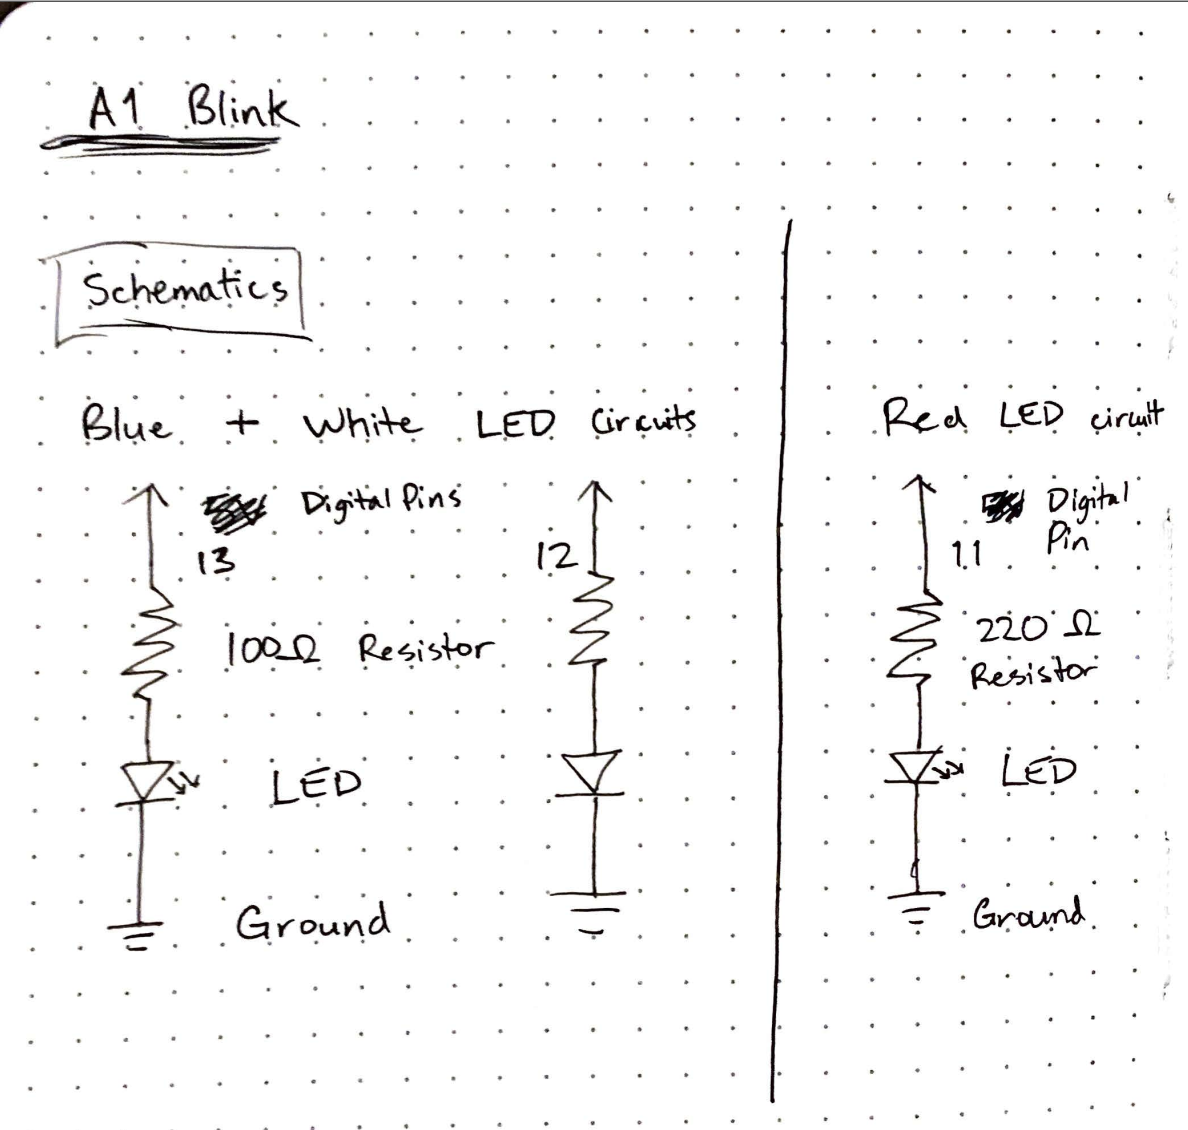 A1 Blink
Schematics
Blue + White LED Circuits
Digital Pins
13
12
100Ω Resistor
LED
Ground
Red LED circuit
Digital
Pin
11
220 Ω
Resistor
LED
Ground